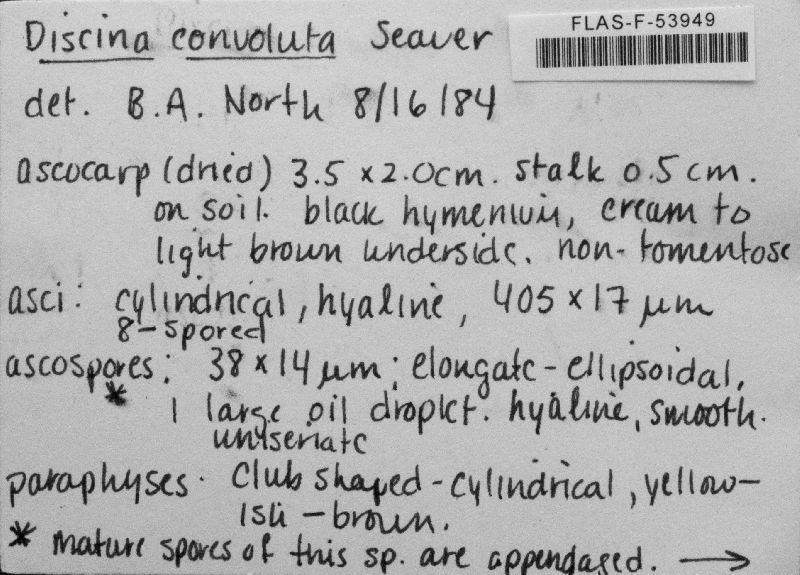 Discina convoluta Seaver
FLAS-F-53949
det. B.A. North 8/16/84
ascocarp (dried) 3.5 x 2.0cm. stalk 0.5 cm.
on soil. black hymenium, cream to
light brown underside. non-tomentose
asci: cylindrical, hyaline, 405 x 17 µm
8-spored
ascospores: 38 x 14 µm; elongate-ellipsoidal,
* 1 large oil droplet. hyaline, smooth.
uniseriate
paraphyses. Club shaped-cylindrical, yellow-
ish-brown.
* mature spores of this sp. are appendaged. →